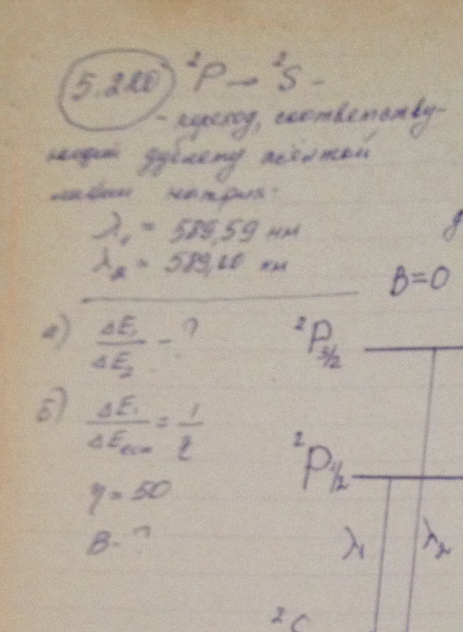 5.220 ²P → ²S -
- переход, соответству-
ющий дублету жёлтой
линии натрия.
λ₁ = 589,59 нм
λ₂ = 589,00 нм
B=0
а) ΔE₁/ΔE₂ - ?
²P₃/₂
б) ΔE₁/ΔEест = 1/η
η = 50
²P₁/₂
B - ?
λ₁ λ₂
²S